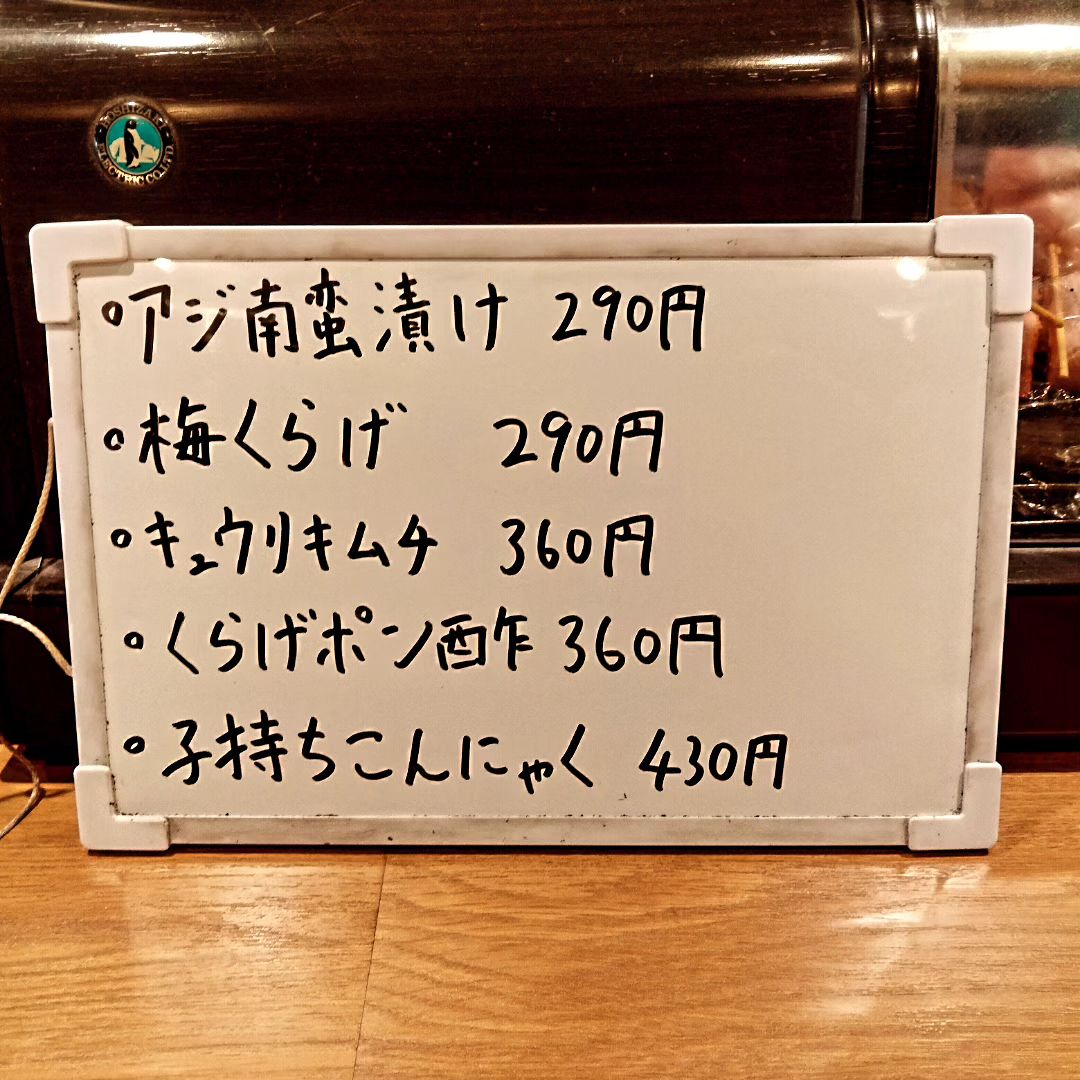 HOSHIZAKI
ELECTRIC CO.,LTD.
。アジ南蛮漬け 290円
。梅くらげ 290円
。キュウリキムチ 360円
。くらげポン酢 360円
。子持ちこんにゃく 430円